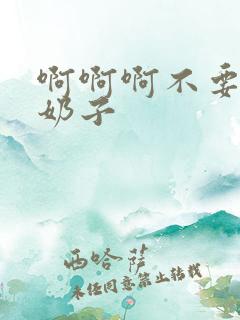 啊啊啊不要
奶子
西哈萨
未经同意禁止转载